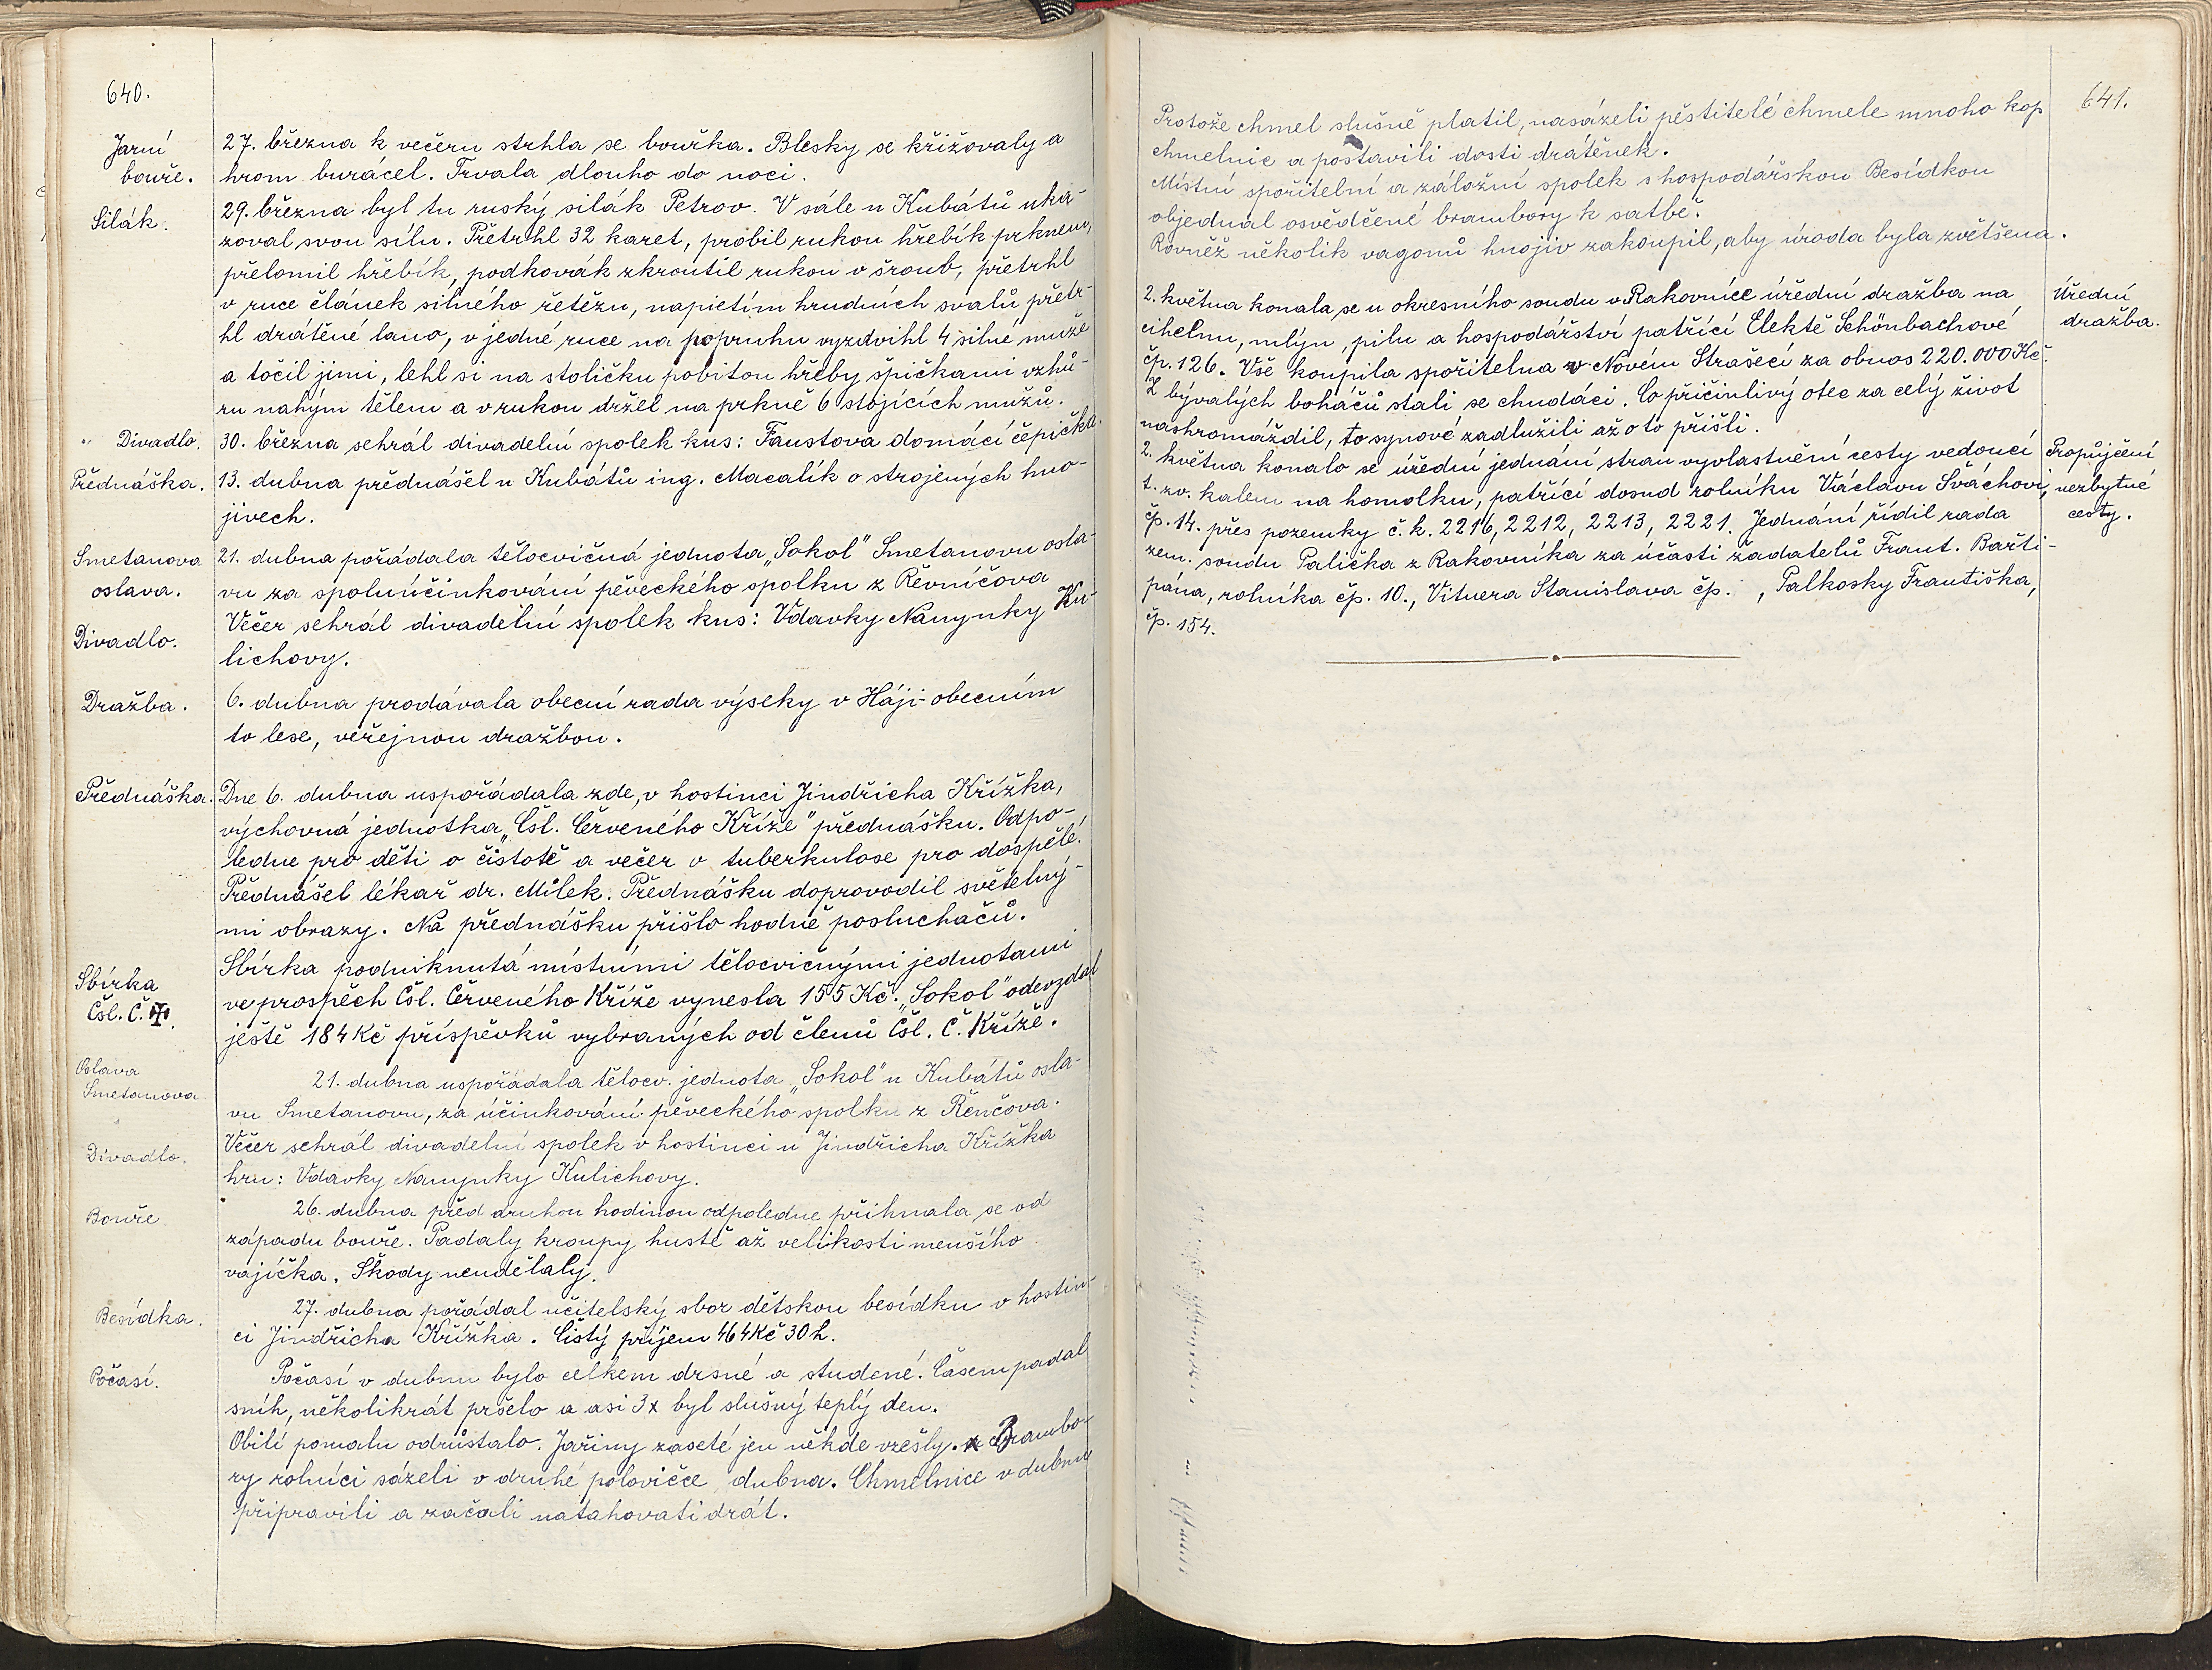 640.
Jarní
bouře.
27. března k večeru strhla se bouřka. Blesky se křižovaly a
hrom burácel. Trvala dlouho do noci.
Silák.
29. března byl tu ruský silák Petrov. V sále u Kubátů uka-
zoval svou sílu. Přetrhl 32 karet, probil rukou hřebík prknem,
přelomil hřebík, podkovák zkroutil rukou v šroub, přetrhl
v ruce článek silného řetězu, napietím hrudních svalů přetr-
hl drátěné lano, v jedné ruce na popruhu vyzdvihl 4 silné muže
a točil jimi, lehl si na stoličku pobitou hřeby špičkami vzhů-
ru nahým tělem a v rukou držel na prkně 6 stojících mužů.
Divadlo.
30. března sehrál divadelní spolek kus: Faustova domácí čepička.
Přednáška.
13. dubna přednášel u Kubátů ing. Macalík o strojených hno-
jivech.
Smetanova
oslava.
21. dubna pořádala tělocvičná jednota „Sokol" Smetanovu osla-
vu za spoluúčinkování pěveckého spolku z Řevníčova
Divadlo.
Večer sehrál divadelní spolek kus: Vdavky Nanynky Ku-
lichovy.
Dražba.
6. dubna prodávala obecní rada výseky v Háji-obecním
to lese, veřejnou dražbou.
Přednáška.
Dne 6. dubna uspořádala zde, v hostinci Jindřicha Křížka,
výchovná jednotka „Čsl. Červeného Kříže" přednášku. Odpo-
ledne pro děti o čistotě a večer o tuberkulose pro dospělé.
Přednášel lékař dr. Milek. Přednášku doprovodil světelný-
mi obrazy. Na přednášku přišlo hodně posluchačů.
Sbírka
Čsl. Č. ✠.
Sbírka podniknutá místními tělocvičnými jednotami
ve prospěch Čsl. Červeného Kříže vynesla 155 Kč. „Sokol" odevzdal
ještě 184 Kč příspěvků vybraných od členů Čsl. Č. Kříže.
Oslava
Smetanova.
21. dubna uspořádala tělocv. jednota „Sokol" u Kubátů osla-
vu Smetanovu, za účinkování pěveckého spolku z Řenčova.
Divadlo.
Večer sehrál divadelní spolek v hostinci u Jindřicha Křížka
hru: Vdavky Nanynky Kulichovy.
Bouře
26. dubna před druhou hodinou odpoledne přihnala se od
západu bouře. Padaly kroupy hustě až velikosti menšího
vajíčka. Škody neudělaly.
Besídka.
27. dubna pořádal učitelský sbor dětskou besídku v hostin-
ci Jindřicha Křížka. Čistý příjem 464 Kč 30 h.
Počasí.
Počasí v dubnu bylo celkem drsné a studené. Časem padal
sníh, několikrát pršelo a asi 3x byl slušný teplý den.
Obilí pomalu odrůstalo. Jařiny zaseté jen někde vzešly. Brambo-
ry rolníci sázeli v druhé polovičce dubna. Chmelnice v dubnu
připravili a začali natahovati drát.
641.
Protože chmel slušně platil, nasázeli pěstitelé chmele mnoho kop
chmelnic a postavili dosti drátěnek.
Místní spořitelní a záložní spolek s hospodářskou Besídkou
objednal osvědčené brambory k satbě.
Rovněž několik vagonů hnojiv zakoupil, aby úroda byla zvětšena.
Úřední
dražba.
2. května konala se u okresního soudu v Rakovníce úřední dražba na
cihelnu, mlýn, pilu a hospodářství patřící Elektě Schönbachové
čp. 126. Vše koupila spořitelna v Novém Strašecí za obnos 220.000 Kč.
Z bývalých boháčů stali se chudáci. Co přičinlivý otec za celý život
nashromáždil, to synové zadlužili až o to přišli.
Propůjčení
nezbytné
cesty.
2. května konalo se úřední jednání stran vyvlastnění cesty vedoucí
t. zv. kalem na homolku, patřící dosud rolníku Václavu Šváchovi,
čp. 14. přes pozemky č. k. 2216, 2212, 2213, 2221. Jednání řídil rada
zem. soudu Palička z Rakovníka za účasti žadatelů Frant. Bařti-
pána, rolníka čp. 10., Vitnera Stanislava čp. , Palkosky Františka,
čp. 154.